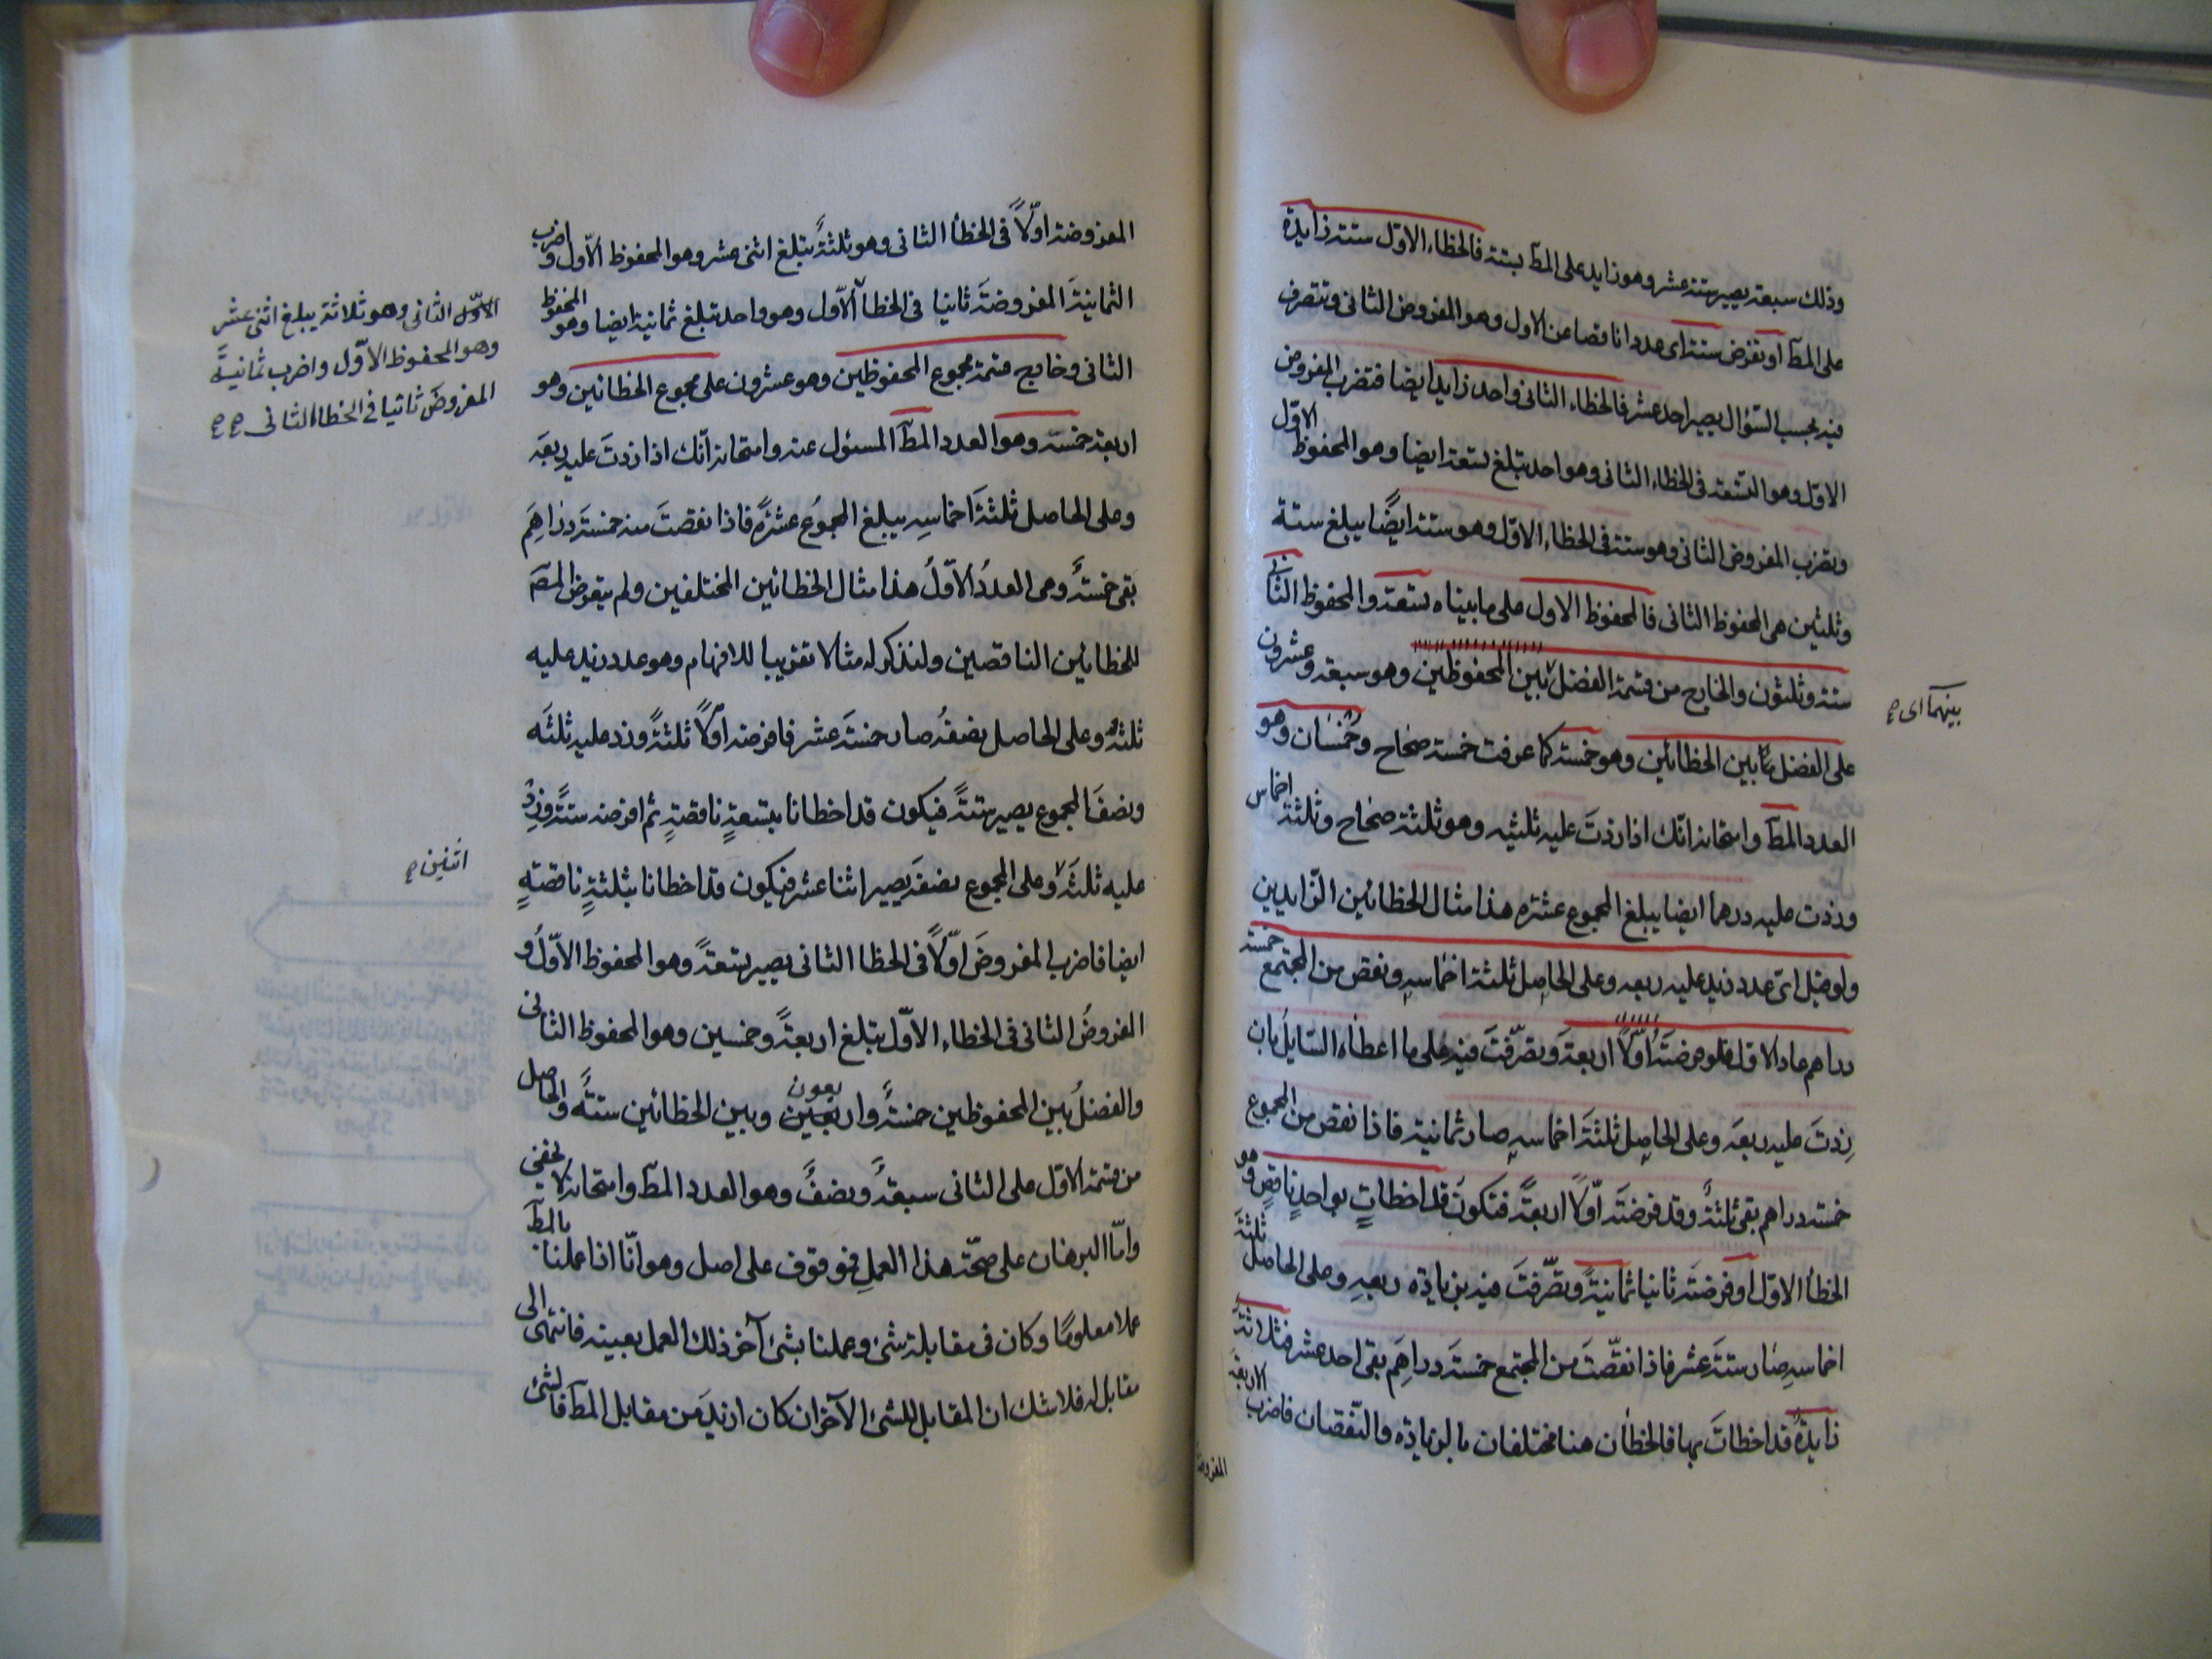 وذلك سبعة يصير ستة عشر وهو زايد على المط بستة فالخطاء الاول ستة زايدة
على المط او تفرض ستة اى عددا ناقصا عن الاول وهو المفروض الثانى وتتصرف
فيه بحسب السؤال يصير احد عشر فالخطاء الثانى واحد زايد ايضا فتضرب المفروض
الاول وهو التسعة فى الخطاء الثانى وهو احد تبلغ تسعة ايضا وهو المحفوظ الاول
وتضرب المفروض الثانى وهو ستة فى الخطاء الاول وهو ستة ايضًا يبلغ ستة
وثلثين هى المحفوظ الثانى فالمحفوظ الاول على ما بيناه تسعة والمحفوظ الثانى
ستة وثلثون والخارج من قسمة الفضل بين المحفوظين وهو سبعة وعشرون
بينهما اى صح
على الفضل ما بين الخطائين وهو خمسة كما عرفت خمسة صحاح وخُمْسَان وهو
العدد المط وامتحانه انّك اذا زدتَ عليه ثلثيه وهو ثلثة صحاح وثلثة اخماس
وزدت عليه درهما ايضا يبلغ المجموع عشرة هذا مثال الخطائين الزايدين
ولو قيل اى عدد زيد عليه ربعه وعلى الحاصل ثلثة اخماسه ونقص من المجتمع خمسة
دراهم عاد الاول فلو فرضتَه اوّلاً اربعة وتصرّفتَ فيه على ما اعطاه السّايل بان
زِدتَ عليه ربعَه وعلى الحاصِل ثلثةَ اخماسه صار ثمانية فاذا نقص من المجموع
خمسة دراهم بقى ثلثةٌ وقد فرضتَه اوّلاً اربعةً فتكونَ قد اخطاتٍ بواحدٍ ناقصٍ وهو
الخطأ الاوّل او فرضتَه ثانيا ثمانيةً وتصّرفتَ فيه بزيادة ربعهِ وعلى الحاصل ثلثةَ
اخماسهِ صار ستةَ عشر فاذا نقّصتَ من المجتمع خمسةَ دراهِمَ بقى احد عشر فثلاثةٌ
زايدةٌ قد اخطاتَ بها فالخطأن هنا مختلفان بالزيادة والنّقصان فاضرب الاربعة
المفروضة
المفروضة اوّلاً فى الخطأ الثانى وهو ثلثةً تبلغ اثنى عشر وهو المحفوظ الاّول واضرب
الثمانيةَ المفروضةَ ثانيا فى الخطأ الاّول وهو واحد تبلغ ثمانية ايضا وهو المحفوظ
الاوّل الثانى وهو ثلاثة يبلغ اثنى عشر
وهو المحفوظ الاوّل واضرب ثمانيةً
المفروضَ ثانيا فى الخطأ الثانى صح صح
الثانى وخارج قسمة مجموع المحفوظين وهو عشرون على مجموع الخطائين وهو
اربعة خمسة وهو العدد المط المسئول عنه وامتحانه انّك اذا زدتَ عليه ربعَه
وعلى الحاصل ثلثةَ اخماسِه يبلغ المجموُع عشرةً فاذا نقصتَ منه خمسةَ دراهِمَ
بقى خمسةٌ وهى العددُ الاوّلُ هذا مثال الخطائين المختلفين ولم يتعرض المصَ
للخطائين الناقصين ولنذكر له مثالا تقريبا للافهام وهو عدد زيد عليه
ثلثُه وعلى الحاصل نصفُه صار خمسةَ عشر فافرضه اوّلاً ثلثةً وزد عليه ثلثَه
ونصفَ المجموع يصير ستةً فيكون قد اخطانا بتسعةٍ ناقصةٍ ثم افرضه ستةً وزِدْ
عليه ثلثَه وعلى المجموع نصفَه يصير اثنا عشر فيكون قد اخطانا بثلثةٍ ناقصةٍ
اثنين صح
ايضا فاضرب المفروضَ اوّلاً فى الخطا الثانى يصير تسعةً وهو المحفوظ الاوّلُ و
المفروضُ الثانى فى الخطاء الاوّل تبلغ اربعةً وخمسين وهو المحفوظ الثانى
والفضلُ بين المحفوظين خمسةٌ واربعين بعون وبين الخطائين ستةٌ والحاصل
من قسمة الاول على الثانى سبعةٌ ونصفٌ وهو العدد المطّ وامتحانه لا يخفى
وامّا البرهان على صحّة هذا العملِ فموقوف على اصل وهو انّا اذا عملنا بالمط
عملا معلومًا وكان فى مقابلة شئ وعملنا بشئ آخر ذلك العمل بعينه فانتهى الى
مقابل له فلا شك ان المقابل للشئ الآخر ان كان ازيدَ من مقابل المط فالشئ